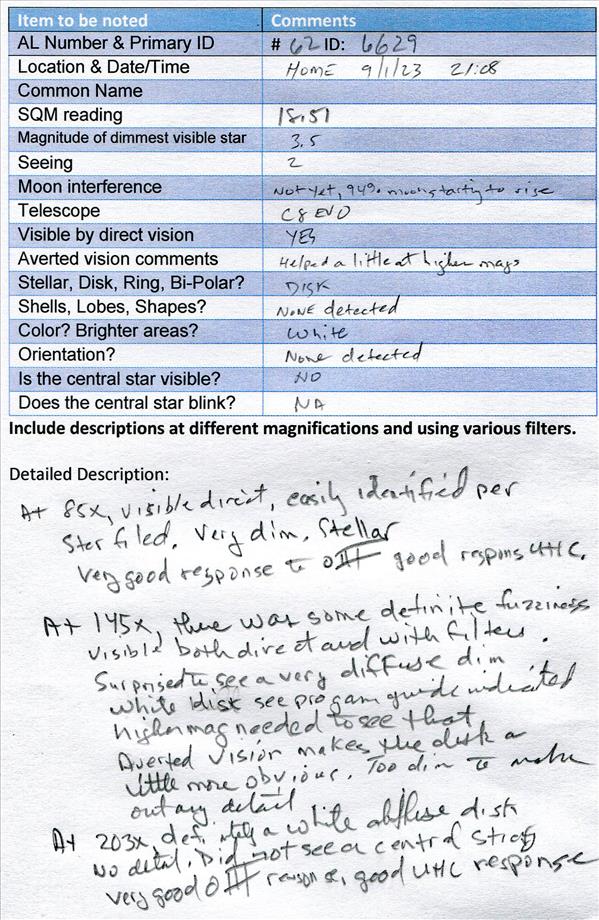 Item to be noted Comments
AL Number & Primary ID # 62 ID: 6629
Location & Date/Time HOME 9/1/23 21:08
Common Name
SQM reading 18.51
Magnitude of dimmest visible star 3.5
Seeing 2
Moon interference Not yet, 94% moon starting to rise
Telescope C8 EVO
Visible by direct vision YES
Averted vision comments Helped a little at higher mags
Stellar, Disk, Ring, Bi-Polar? DISK
Shells, Lobes, Shapes? NONE detected
Color? Brighter areas? White
Orientation? None detected
Is the central star visible? NO
Does the central star blink? NA
Include descriptions at different magnifications and using various filters.
Detailed Description:
At 85x, visible direct, easily identified per
Star filed. Very dim. Stellar
Very good response to OIII good respons UHC.
At 145x, there was some definite fuzziness
visible both direct and with filters.
Surprised to see a very diffuse dim
white disk see program guide indicated
higher mag needed to see that
Averted Vision makes the disk a
little more obvious. Too dim to make
out any detail
At 203x, definitely a white diffuse disk
No detail. Did not see a central
very good OIII response, good UHC response